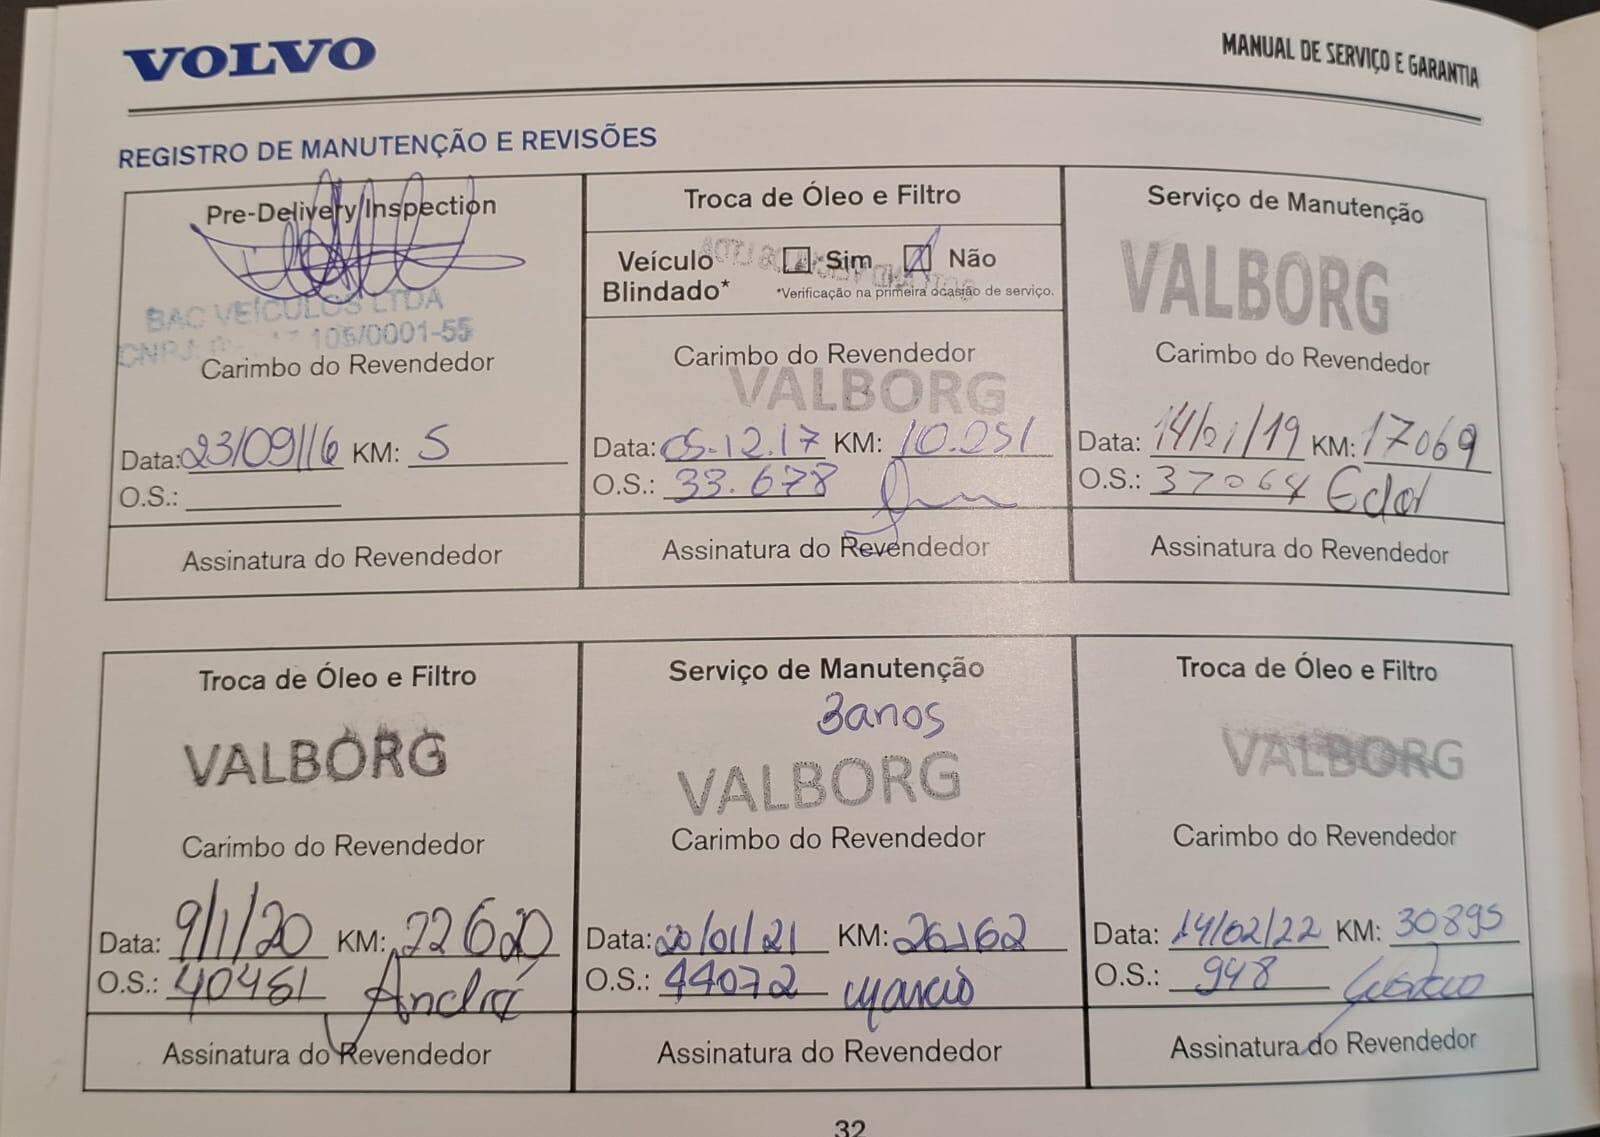 VOLVO
MANUAL DE SERVIÇO E GARANTIA
REGISTRO DE MANUTENÇÃO E REVISÕES
Pre-Delivery Inspection
BAC VEÍCULOS LTDA
CNPJ 105/0001-55
Carimbo do Revendedor
Data: 23/09/16 KM: 5
O.S.:
Assinatura do Revendedor
Troca de Óleo e Filtro
Veículo Blindado* Sim Não
*Verificação na primeira ocasião de serviço.
Carimbo do Revendedor
VALBORG
Data: 05.12.17 KM: 10.051
O.S.: 33.678
Assinatura do Revendedor
Serviço de Manutenção
VALBORG
Carimbo do Revendedor
Data: 14/01/19 KM: 17069
O.S.: 37064
Assinatura do Revendedor
Troca de Óleo e Filtro
VALBORG
Carimbo do Revendedor
Data: 9/1/20 KM: 22620
O.S.: 40461 André
Assinatura do Revendedor
Serviço de Manutenção
3anos
VALBORG
Carimbo do Revendedor
Data: 20/01/21 KM: 26162
O.S.: 44072 Marcio
Assinatura do Revendedor
Troca de Óleo e Filtro
VALBORG
Carimbo do Revendedor
Data: 14/02/22 KM: 30895
O.S.: 948 Gustavo
Assinatura do Revendedor
32